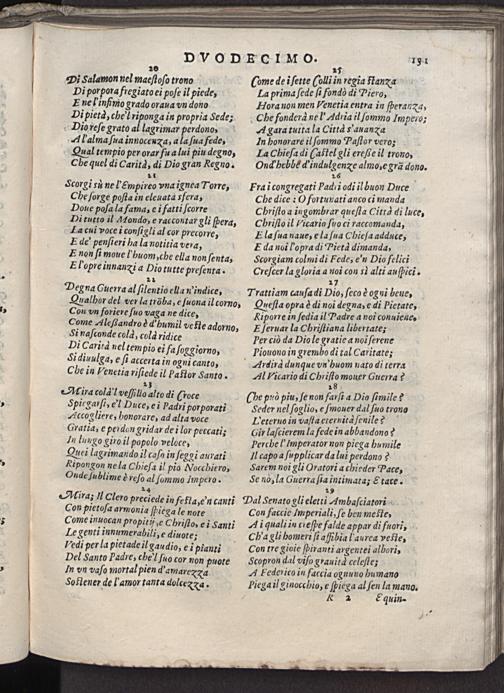 DVODECIMO. 131
20
Di Salamon nel maestoso trono
Di porpora fregiato ei pose il piede,
E ne l'infimo grado oraua vn dono
Di pietà, che'l riponga in propria Sede;
Dio rese grato al lagrimar perdono,
A l'alma sua innocenza, a la sua fede,
Qual tempio per orar fu a lui piu degno,
Che quel di Carità, di Dio gran Regno.
21
Scorgi sù ne l'Empireo vna ignea Torre,
Che sorge posta in eleuata sfera,
Doue posa la fama, e i fatti scorre
Di tutto il Mondo, e raccontar gli spera,
La cui voce i consigli al cor precorre,
E de' pensieri ha la notitia vera,
E non si moue l'huom, che ella non senta,
E l'opre innanzi a Dio tutte presenta.
22
Degna Guerra al silentio ella n'indice,
Qualhor del ver la trõba, e suona il corno,
Con vn foriere suo vaga ne dice,
Come Alessandro è d'humil veste adorno,
Si nasconde colà, colà ridice
Di Carità nel tempio ei fa soggiorno,
Si diuulga, e si accerta in ogni canto,
Che in Venetia risiede il Pastor Santo.
23
Mira colà'l vessillo alto di Croce
Spiegarsi, e'l Duce, e i Padri porporati
Accogliere, honorare, ad alta voce
Gratia, e perdon gridar de i lor peccati;
In lungo giro il popolo veloce,
Quei lagrimando il caso in seggi aurati
Ripongon ne la Chiesa il pio Nocchiero,
Onde sublime è reso al sommo Impero.
24
Mira; Il Clero preciede in festa, e'n canti
Con pietosa armonia spiega le note
Come inuocan propitij, e Christo, e i Santi
Le genti innumerabili, e diuote;
Vedi per la pietade il gaudio, e i pianti
Del Santo Padre, che'l suo cor non puote
In vn vaso mortal pien d'amarezza
Sostener de l'amor tanta dolcezza.
25
Come de i sette Colli in regia stanza
La prima sede si fondò di Piero,
Hora non men Venetia entra in speranza,
Che fonderà ne l'Adria il sommo Impero;
A gara tutta la Città s'auanza
In honorare il sommo Pastor vero;
La Chiesa di Castel gli eresse il trono,
Ond'hebbe d'indulgenze almo, e grã dono.
26
Fra i congregati Padri odi il buon Duce
Che dice: O fortunati anco ci manda
Christo a ingombrar questa Città di luce,
Christo il Vicario suo ci raccomanda,
E la sua naue, e la sua Chiesa adduce,
E da noi l'opra di Pietà dimanda,
Scorgiam colmi di Fede, e'n Dio felici
Crescer la gloria a noi con sì alti auspici.
27
Trattiam causa di Dio, seco è ogni bene,
Questa opra è di noi degna, e di Pietate,
Riporre in sedia il Padre a noi conuiene,
E seruar la Christiana libertate;
Per ciò da Dio le gratie a noi serene
Piouono in grembo di tal Caritate;
Ardirà dunque vn'huom nato di terra
Al Vicario di Christo mouer Guerra?
28
Che può piu, se non farsi a Dio simile?
Seder nel soglio, e smouer dal suo trono
L'eterno in vasta eternità senile?
Gir lascierem la fede in abbandono?
Perche l'Imperator non piega humile
Il capo a supplicar da lui perdono?
Sarem noi gli Oratori a chieder Pace,
Se nò, la Guerra sia intimata; E tace.
29
Dal Senato gli eletti Ambasciatori
Con faccie Imperiali, se ben meste,
A i quali in crespe falde appar di fuori,
Ch'a gli homeri si affibia l'aurea veste,
Con tre gioie spiranti argentei albori,
Scopron dal viso grauità celeste;
A Federico in faccia ognuno humano
Piega il ginocchio, e spiega al sen la mano.
R 2 E quin-